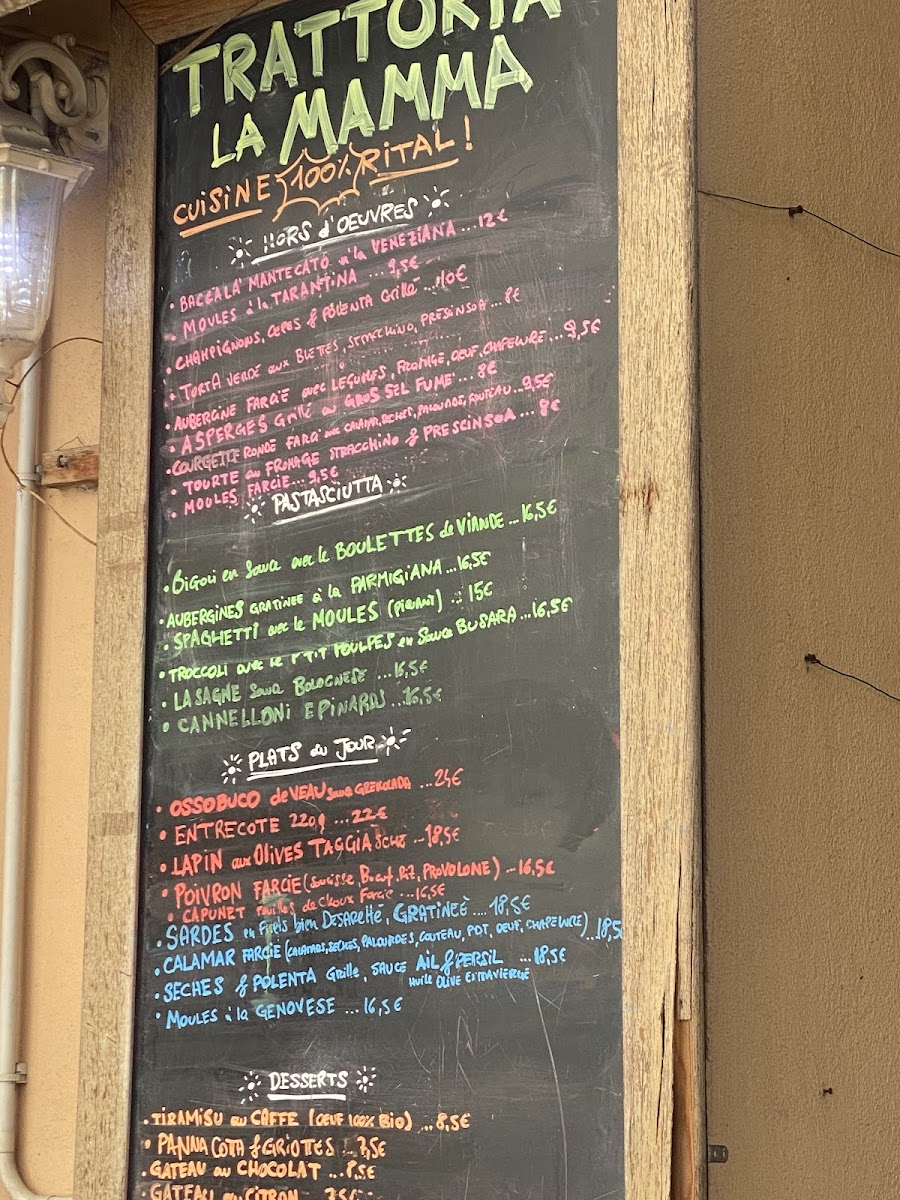 TRATTORIA
LA MAMMA
CUISINE 100% RITAL !
HORS d'OEUVRES
• BACCALA' MANTECATO à la VENEZIANA ... 12€
• MOULES à la TARANTINA ... 9,5€
• CHAMPIGNONS, CEPES & POLENTA GRILLÉ ... 10€
• TORTA VERDE aux BLETTES, STRACCHINO, PRESINSOA ... 8€
• AUBERGINE FARCIE avec LEGUMES, FROMAGE, OEUF, CHAPELURE ... 9,5€
• ASPERGES Grillé au GROS SEL FUMÉ ... 8€
• COURGETTE RONDE FARCI avec CALAMAR, SECHES, PALOURDE, COUTEAU ... 9,5€
• TOURTE au FROMAGE STRACCHINO & PRESCINSOA ... 8€
• MOULES FARCIE ... 9,5€
PASTASCIUTTA
• BIGOLI en Sauce avec le BOULETTES de VIANDE ... 16,5€
• AUBERGINES GRATINEE à la PARMIGIANA ... 16,5€
• SPAGHETTI avec le MOULES (PIQUANT) ... 15€
• TROCCOLI avec le P'TIT POULPES en Sauce BUSARA ... 16,5€
• LASAGNE Sauce BOLOGNESE ... 16,5€
• CANNELLONI EPINARDS ... 16,5€
PLATS du JOUR
• OSSOBUCO de VEAU Sauce GREMOLADA ... 24€
• ENTRECOTE 220g ... 22€
• LAPIN aux OLIVES TAGGIASCHE ... 18,5€
• POIVRON FARCIE (Saucisse, Boeuf, RIZ, PROVOLONE) ... 16,5€
• CAPUNET feuilles de Choux Farcie ... 16,5€
• SARDES en Filets bien DESARETTÉ, GRATINEÈ .... 18,5€
• CALAMAR FARCIE (CALAMARS, SECHES, PALOURDES, COUTEAU, PDT, OEUF, CHAPELURE) ... 18,5
• SECHES & POLENTA Grille, SAUCE AIL & PERSIL ... 18,5€
HUILE OLIVE EXTRAVIERGE
• MOULES à la GENOVESE ... 16,5€
DESSERTS
• TIRAMISU au CAFFE (OEUF 100% BIO) ... 8,5€
• PANNA COTA & GRIOTTES ... 7,5€
• GATEAU au CHOCOLAT ... 8,5€
• GATEAU au CITRON ... 7,5€